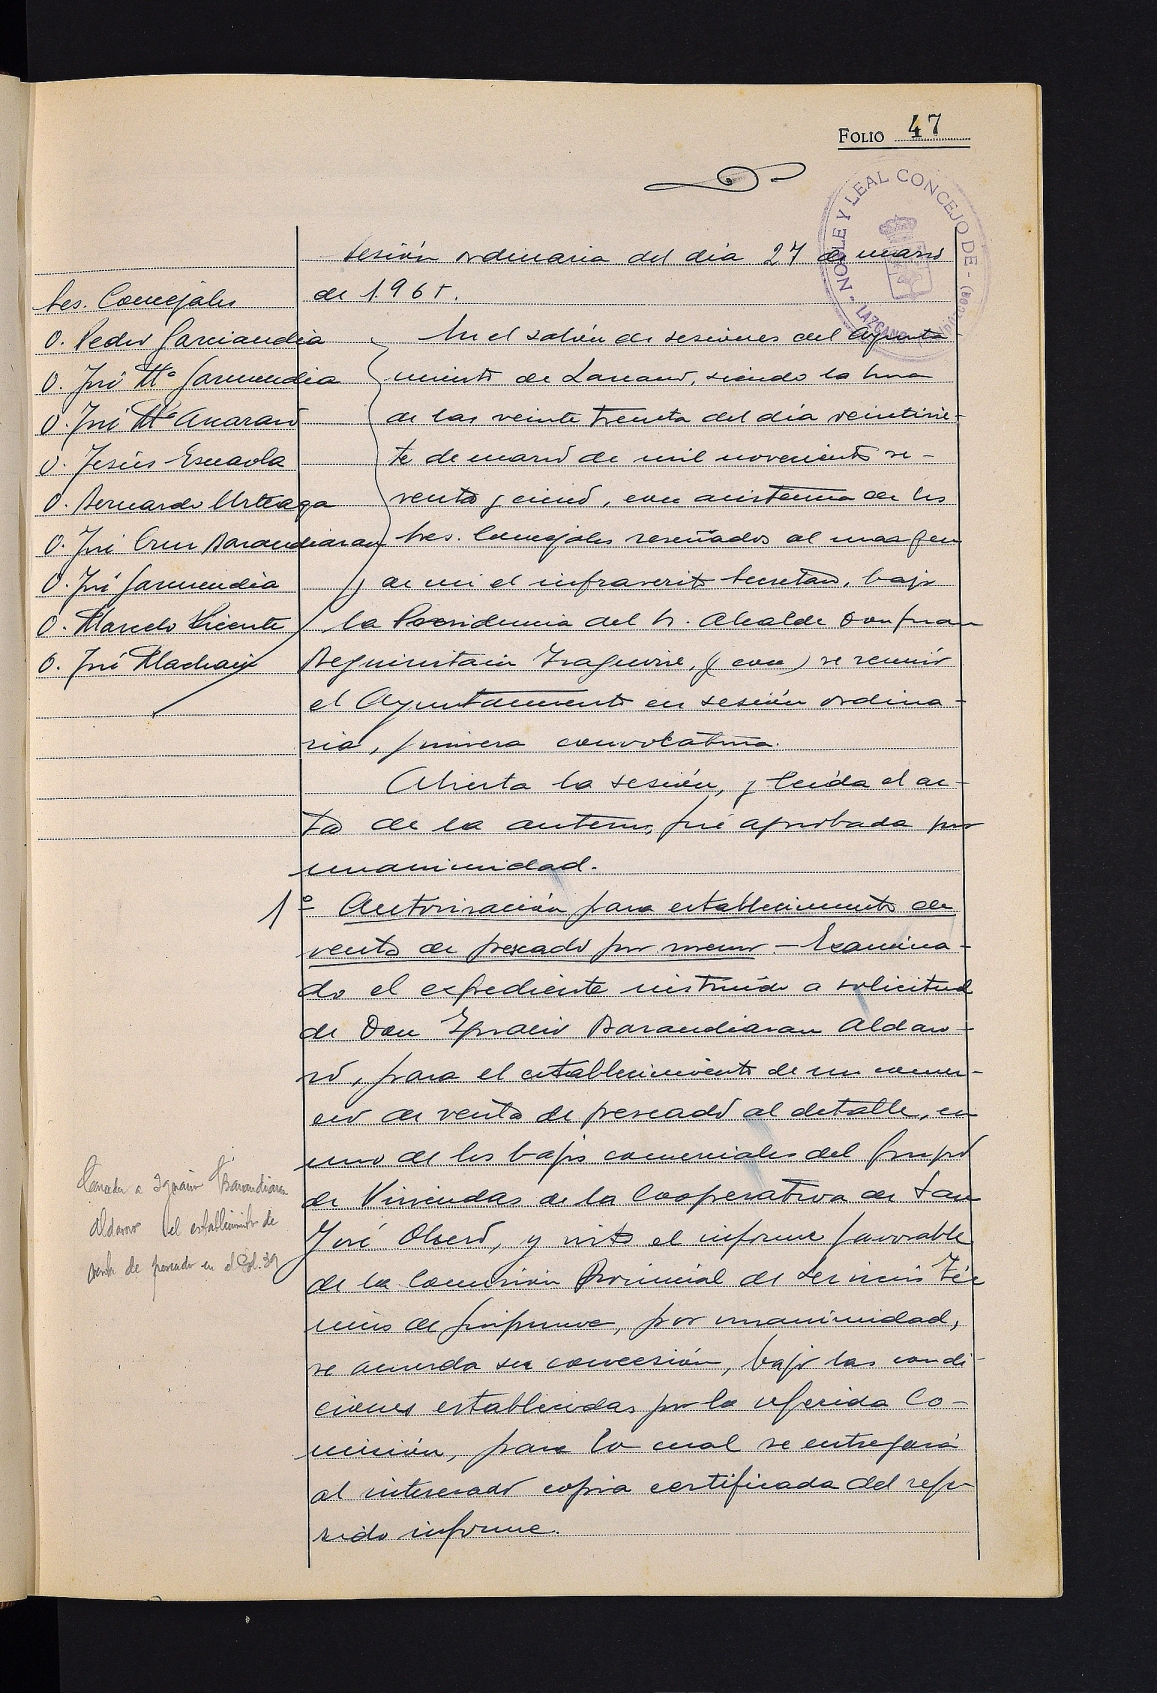 FOLIO 47
NOBLE Y LEAL CONCEJO DE - LAZCANO
Sesión ordinaria del dia 27 de marzo
de 1965.
Sres. Concejales
D. Pedro Garciandia
D. José Mª Garmendia
D. José Mª
D. Jesús Escaola
D. Bernardo Urteaga
D. José Cruz Barandiaran
D. José Garmendia
D. Marcelo Vicente
D. José
En el salón de sesiones del Ayunta
miento de Lazcano, siendo la hora
de las veinte treinta del dia veintisie-
te de marzo de mil novecientos se-
senta y cinco, con asistencia de los
Sres. Concejales reseñados al margen
y de mi el infrascrito Secretario, bajo
la Presidencia del Sr. Alcalde Don Juan
Beguiristain se reunió
el Ayuntamiento en sesión ordina-
ria, primera convocatoria.
Abierta la sesión, y leida el ac-
ta de la anterior, fué aprobada por
unanimidad.
1º Autorización para establecimiento de
venta de pescado por menor - Examina-
do el expediente instruido a solicitud
de Don Ignacio Barandiaran Aldaso-
ro, para el establecimiento de un comer-
cio de venta de pescado al detalle, en
uno de los bajos comerciales del Grupo
de Viviendas de la Cooperativa de San
José Obrero, y visto el informe favorable
de la Comisión Provincial de Servicios Téc
nicos de Guipuzcoa, por unanimidad,
se acuerda su concesión, bajo las condi-
ciones establecidas por la referida Co-
misión, para lo cual se entregará
al interesado copia certificada del refe-
rido informe.
Conceder a Ignacio Barandiaran
Aldasoro el establecimiento de
venta de pescado en el